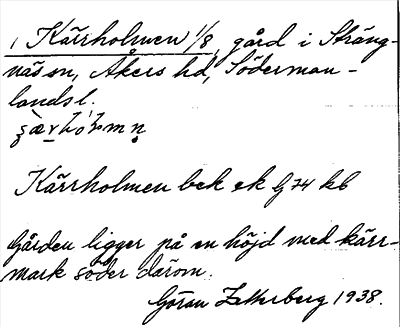 1 Kärrholmen 1/8, gård i Sträng-
näs sn, Åkers hd, Söderman-
lands l.
Kärrholmen bek ek G 74 kb
Gården ligger på en höjd med kärr-
mark söder därom.
Göran Zetterberg 1938.